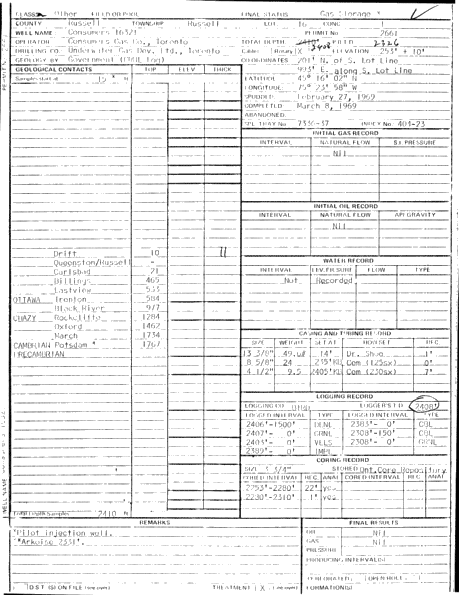 CLASS Other FIELD OR POOL FINAL STATUS Gas Storage
COUNTY Russell TOWNSHIP Russell LOT 16 CONC 1
WELL NAME Consumers 16321 PERMIT No 2661
OPERATOR Consumers Gas Co., Toronto TOTAL DEPTH 3408 2326
DRILLING CO. Underwater Gas Dev. Ltd., Toronto Cable Rotary X ELEVATION 253' + 10'
GEOLOGY BY Government COORDINATES 201' N. of S. Lot Line
993' E. along S. Lot Line
GEOLOGICAL CONTACTS TOP ELEV THICK LATITUDE 45° 16' 02" N
Samples start at 15 LONGITUDE 75° 23' 58" W
SPUDDED February 27, 1969
COMPLETED March 8, 1969
ABANDONED
SPL TRAY No 7336-37 INDEX No 404-23
INITIAL GAS RECORD
INTERVAL NATURAL FLOW S.I. PRESSURE
Nil
INITIAL OIL RECORD
INTERVAL NATURAL FLOW API GRAVITY
Nil
Drift 10 11
Queenston/Russell -
Carlsbad 21
Billings 465
Eastview 553
OTTAWA Trenton 584
Black River 977
CHAZY Rockcliffe 1284
Oxford 1462
March 1734
CAMBRIAN Potsdam * 1767
PRECAMBRIAN
WATER RECORD
INTERVAL FLOW TYPE
Not Recorded
CASING AND TUBING RECORD
SIZE WEIGHT SET AT HOW SET REC
13 3/8" 49.0# 14' Dr. Shoe 1'
8 5/8" 24 235'KB Cem (125sx) 0'
4 1/2" 9.5 2405'KB Cem (230sx) 7'
LOGGING RECORD
LOGGING CO LOGGER'S T.D. 2408'
LOGGED INTERVAL TYPE LOGGED INTERVAL TYPE
2406'-1500' DENL 2383'- 0' CBL
2407'- 0' GRNL 2308'-150' CBL
2403'- 0' VELS 2308'- 0'
2389'- 0' TMPL
CORING RECORD
SIZE 3 3/4" STORED Ont. Core Repository
CORED INTERVAL REC. ANAL CORED INTERVAL REC. ANAL
2253'-2280' 22' yes
2230'-2310' 1' yes
Total Depth Samples 2410
REMARKS FINAL RESULTS
Pilot injection well. OIL Nil
"Arkoise 2331". GAS Nil
PRESSURE
PRODUCING INTERVAL(S)
PERFORATED, OPEN HOLE,
D.S.T. (S) ON FILE TREATMENT X FORMATION(S)